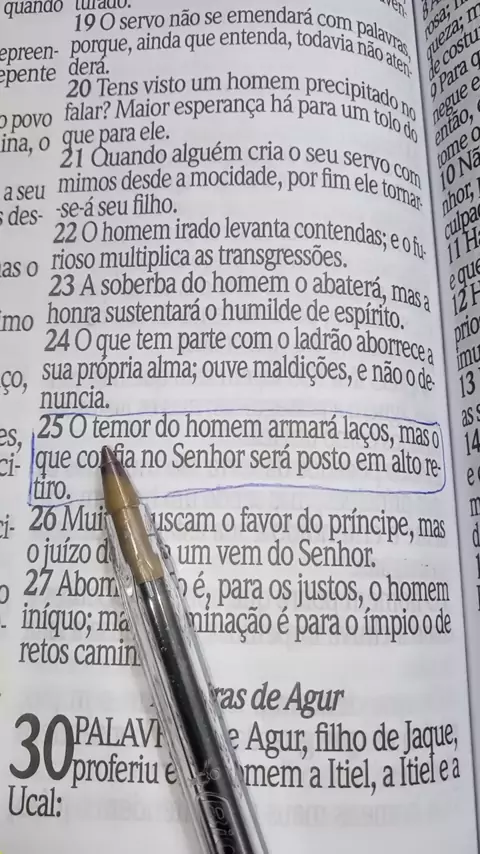 quando turado.
19 O servo não se emendará com palavras,
porque, ainda que entenda, todavia não aten-
derá.
20 Tens visto um homem precipitado no
falar? Maior esperança há para um tolo do
que para ele.
21 Quando alguém cria o seu servo com
mimos desde a mocidade, por fim ele tornar-
-se-á seu filho.
22 O homem irado levanta contendas; e o fu-
rioso multiplica as transgressões.
23 A soberba do homem o abaterá, mas a
honra sustentará o humilde de espírito.
24 O que tem parte com o ladrão aborrece a
sua própria alma; ouve maldições, e não o de-
nuncia.
25 O temor do homem armará laços, mas o
que confia no Senhor será posto em alto re-
tiro.
26 uscam o favor do príncipe, mas
o juízo d um vem do Senhor.
27 Abom o é, para os justos, o homem
iníquo; ma minação é para o ímpio o de
retos camin
ras de Agur
30 PALAV e Agur, filho de Jaque,
proferiu e mem a Itiel, a Itiel e a
Ucal:
epreen-
epente
o povo
ina, o
a seu
s des-
as o
imo
ço,
es,
ci-
ci-
o
queza; m
de costu
o Para q
negue e
então,
tome o
10 Nã
nhor,
culpa
11 H
e que
12 H
prio
imu
13
as s
14
e
m
d